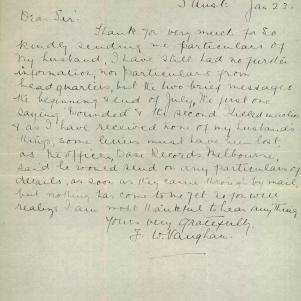 S Aust. Jan 23.
Dear Sir:
Thank you very much for so
kindly sending me particulars of
my husband, I have still had no further
information, nor particulars from
headquarters, but the two brief messages
the beginning & end of July, the first one
saying wounded & the second killed in action
& as I have received none of my husbands
things, some letters must have been lost,
as the officer, Base Records Melbourne,
said he would send on any particulars or
details, as soon as they came through by mail,
but nothing has come to me yet, so you will
realize I am most thankful to hear anything
Yours very gratefully,
F. W. Vaughan.